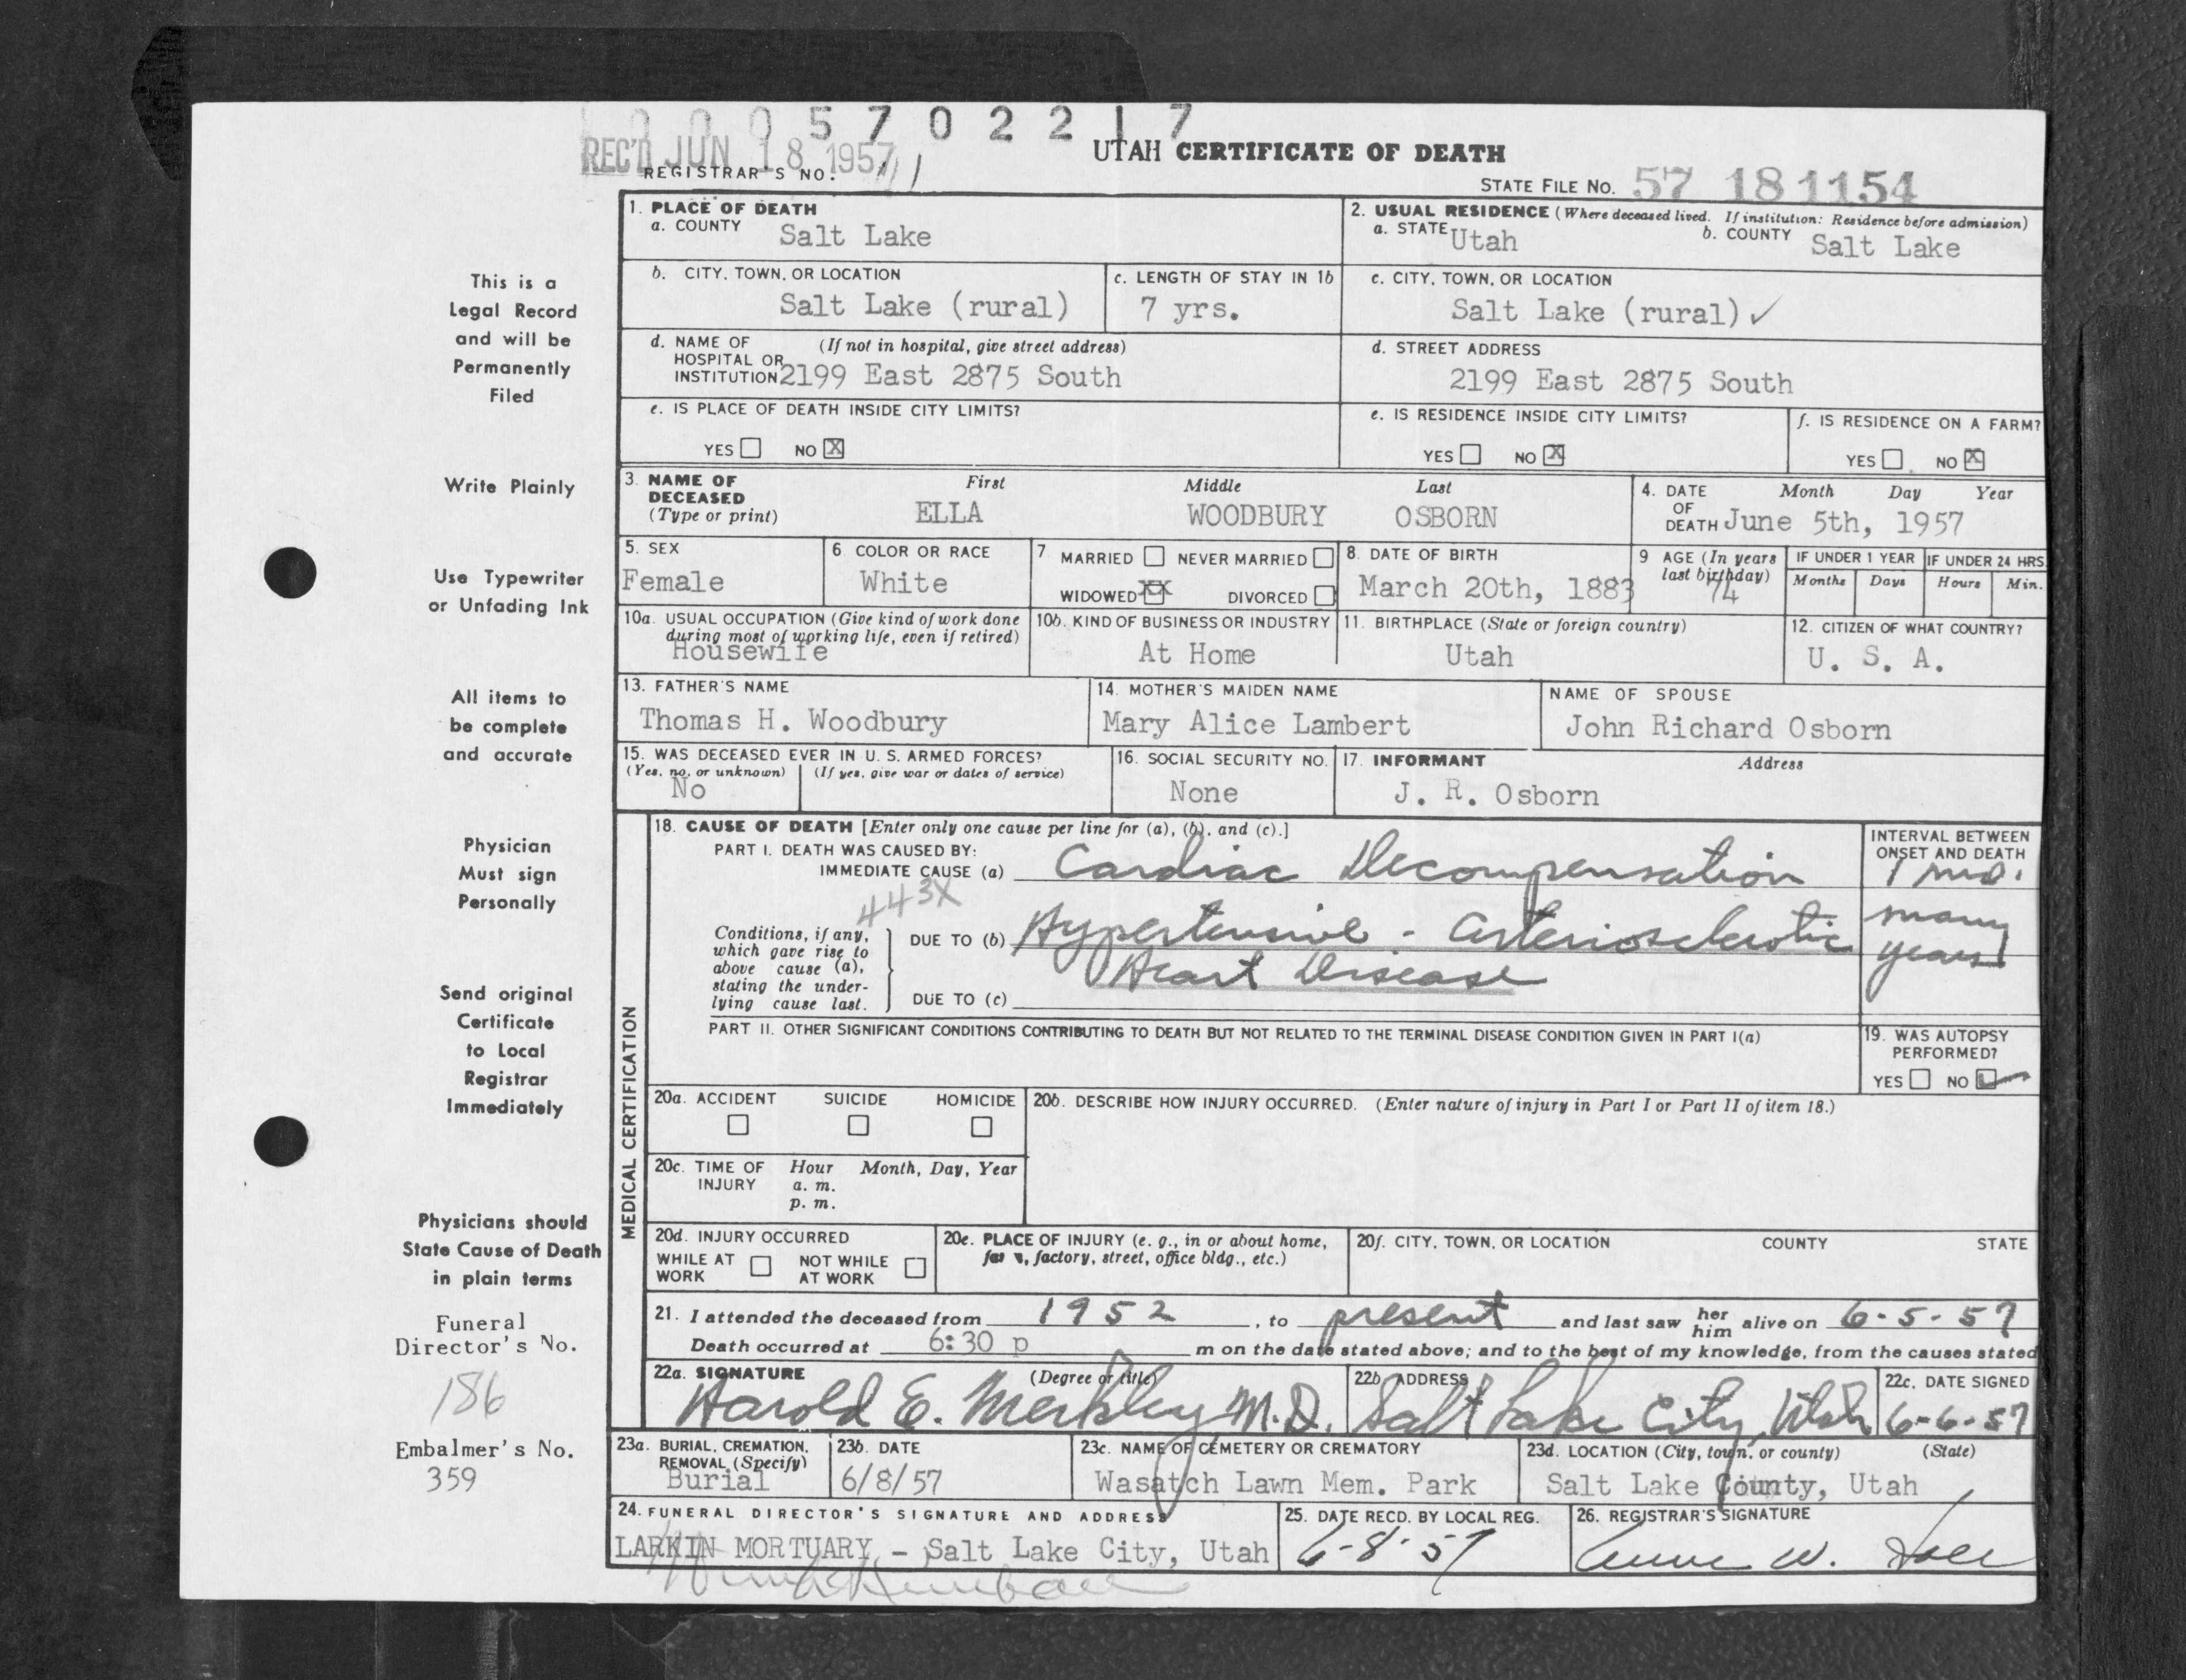 0 0 0 5 7 0 2 2 1 7
REC'D JUN 18 1957
REGISTRAR'S NO.
UTAH CERTIFICATE OF DEATH
STATE FILE NO. 57 18 1154
This is a
Legal Record
and will be
Permanently
Filed
Write Plainly
Use Typewriter
or Unfading Ink
All items to
be complete
and accurate
Physician
Must sign
Personally
Send original
Certificate
to Local
Registrar
Immediately
Physicians should
State Cause of Death
in plain terms
Funeral
Director's No.
186
Embalmer's No.
359
1. PLACE OF DEATH
a. COUNTY Salt Lake
2. USUAL RESIDENCE (Where deceased lived. If institution: Residence before admission)
a. STATE Utah b. COUNTY Salt Lake
b. CITY, TOWN, OR LOCATION
Salt Lake (rural)
c. LENGTH OF STAY IN 1b
7 yrs.
c. CITY, TOWN, OR LOCATION
Salt Lake (rural) ✓
d. NAME OF (If not in hospital, give street address)
HOSPITAL OR
INSTITUTION 2199 East 2875 South
d. STREET ADDRESS
2199 East 2875 South
e. IS PLACE OF DEATH INSIDE CITY LIMITS?
YES NO X
e. IS RESIDENCE INSIDE CITY LIMITS?
YES NO X
f. IS RESIDENCE ON A FARM?
YES NO X
3. NAME OF DECEASED (Type or print)
First Middle Last
ELLA WOODBURY OSBORN
4. DATE OF DEATH Month Day Year
June 5th, 1957
5. SEX
Female
6 COLOR OR RACE
White
7 MARRIED NEVER MARRIED
WIDOWED XX DIVORCED
8. DATE OF BIRTH
March 20th, 1883
9 AGE (In years last birthday)
74
IF UNDER 1 YEAR
Months Days
IF UNDER 24 HRS.
Hours Min.
10a. USUAL OCCUPATION (Give kind of work done
during most of working life, even if retired)
Housewife
10b. KIND OF BUSINESS OR INDUSTRY
At Home
11. BIRTHPLACE (State or foreign country)
Utah
12. CITIZEN OF WHAT COUNTRY?
U. S. A.
13. FATHER'S NAME
Thomas H. Woodbury
14. MOTHER'S MAIDEN NAME
Mary Alice Lambert
NAME OF SPOUSE
John Richard Osborn
15. WAS DECEASED EVER IN U. S. ARMED FORCES?
(Yes, no, or unknown) (If yes, give war or dates of service)
No
16. SOCIAL SECURITY NO.
None
17. INFORMANT Address
J. R. Osborn
MEDICAL CERTIFICATION
18. CAUSE OF DEATH [Enter only one cause per line for (a), (b), and (c).]
PART I. DEATH WAS CAUSED BY:
IMMEDIATE CAUSE (a) Cardiac Decompensation
443X
INTERVAL BETWEEN
ONSET AND DEATH
1 mo.
Conditions, if any,
which gave rise to
above cause (a),
stating the under-
lying cause last.
DUE TO (b) Hypertensive - arteriosclerotic
Heart Disease
many
years
DUE TO (c)
PART II. OTHER SIGNIFICANT CONDITIONS CONTRIBUTING TO DEATH BUT NOT RELATED TO THE TERMINAL DISEASE CONDITION GIVEN IN PART I(a)
19. WAS AUTOPSY
PERFORMED?
YES NO ✓
20a. ACCIDENT SUICIDE HOMICIDE
20b. DESCRIBE HOW INJURY OCCURRED. (Enter nature of injury in Part I or Part II of item 18.)
20c. TIME OF INJURY Hour Month, Day, Year
a. m.
p. m.
20d. INJURY OCCURRED
WHILE AT WORK NOT WHILE AT WORK
20e. PLACE OF INJURY (e. g., in or about home,
factory, street, office bldg., etc.)
20f. CITY, TOWN, OR LOCATION COUNTY STATE
21. I attended the deceased from 1952, to present and last saw her him alive on 6-5-57
Death occurred at 6:30 p m on the date stated above; and to the best of my knowledge, from the causes stated
22a. SIGNATURE (Degree or title)
Harold E. Merkley M.D.
22b ADDRESS
Salt Lake City, Utah
22c. DATE SIGNED
6-6-57
23a. BURIAL, CREMATION,
REMOVAL (Specify)
Burial
23b. DATE
6/8/57
23c. NAME OF CEMETERY OR CREMATORY
Wasatch Lawn Mem. Park
23d. LOCATION (City, town, or county) (State)
Salt Lake County, Utah
24. FUNERAL DIRECTOR'S SIGNATURE AND ADDRESS
LARKIN MORTUARY - Salt Lake City, Utah
25. DATE RECD. BY LOCAL REG.
6-8-57
26. REGISTRAR'S SIGNATURE